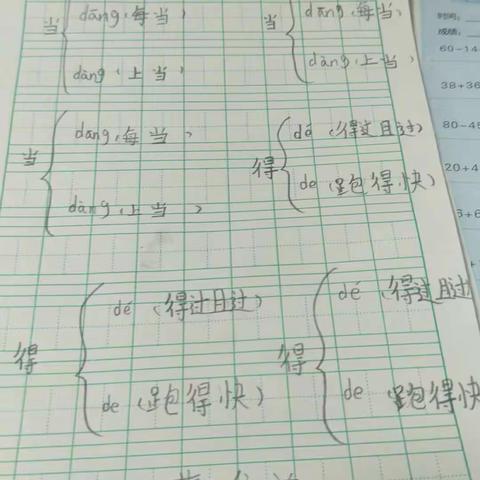 当 dāng (每当) 当 dāng (每当)
dàng (上当) dàng (上当)
当 dāng (每当) 得 dé (得过且过)
dàng (上当) de (跑得快)
得 dé (得过且过) 得 dé (得过且过
de (跑得快) de 跑得快
时间:
成绩:
60-14
38+36
80-45
20+4